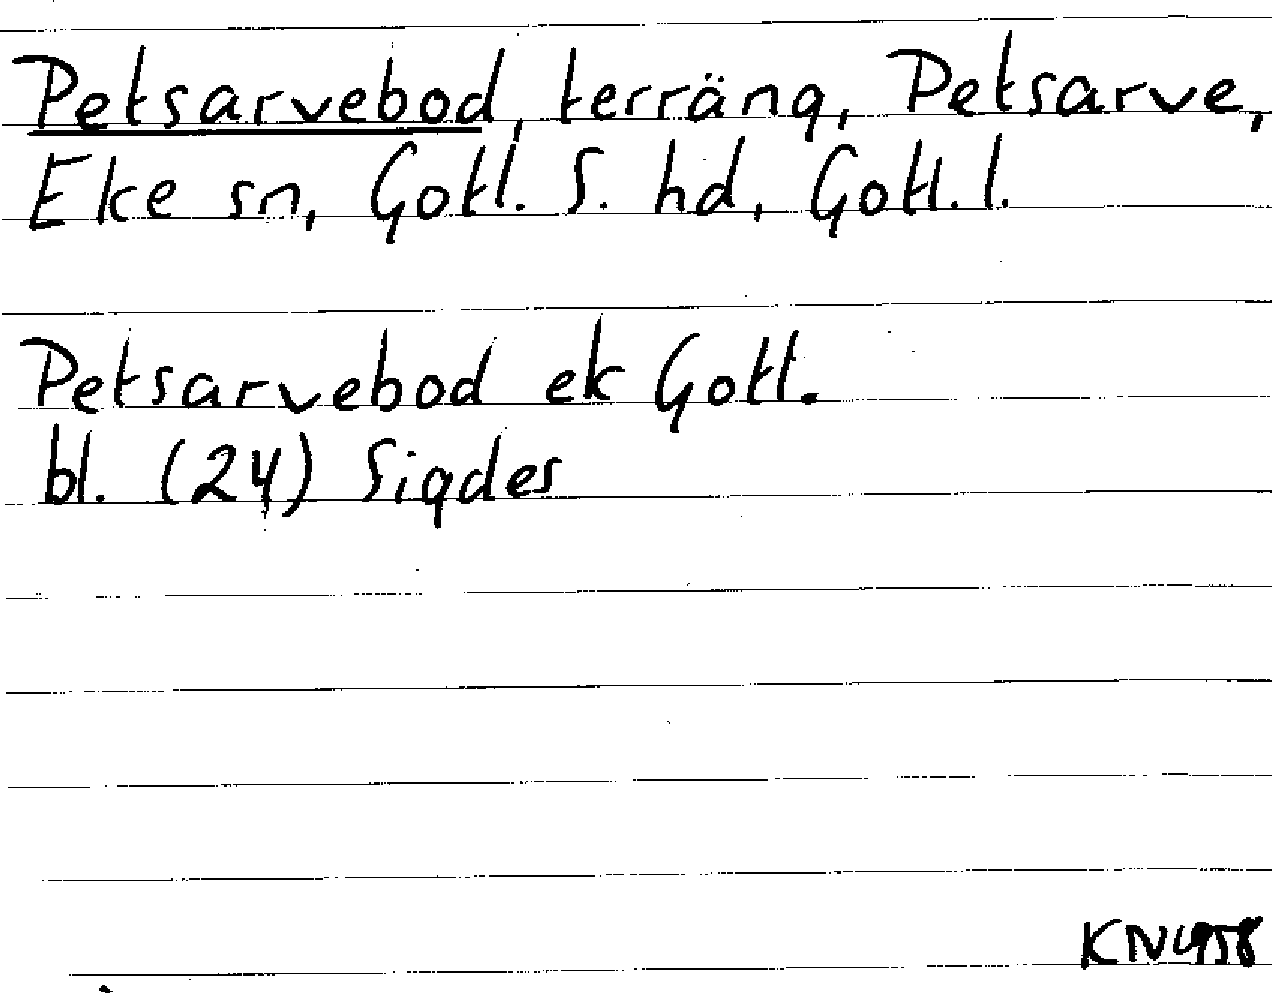 Petsarvebod, terräng, Petsarve,
Eke sn, Gotl. S. hd, Gotl. l.
Petsarvebod ek Gotl.
bl. (24) Sigdes